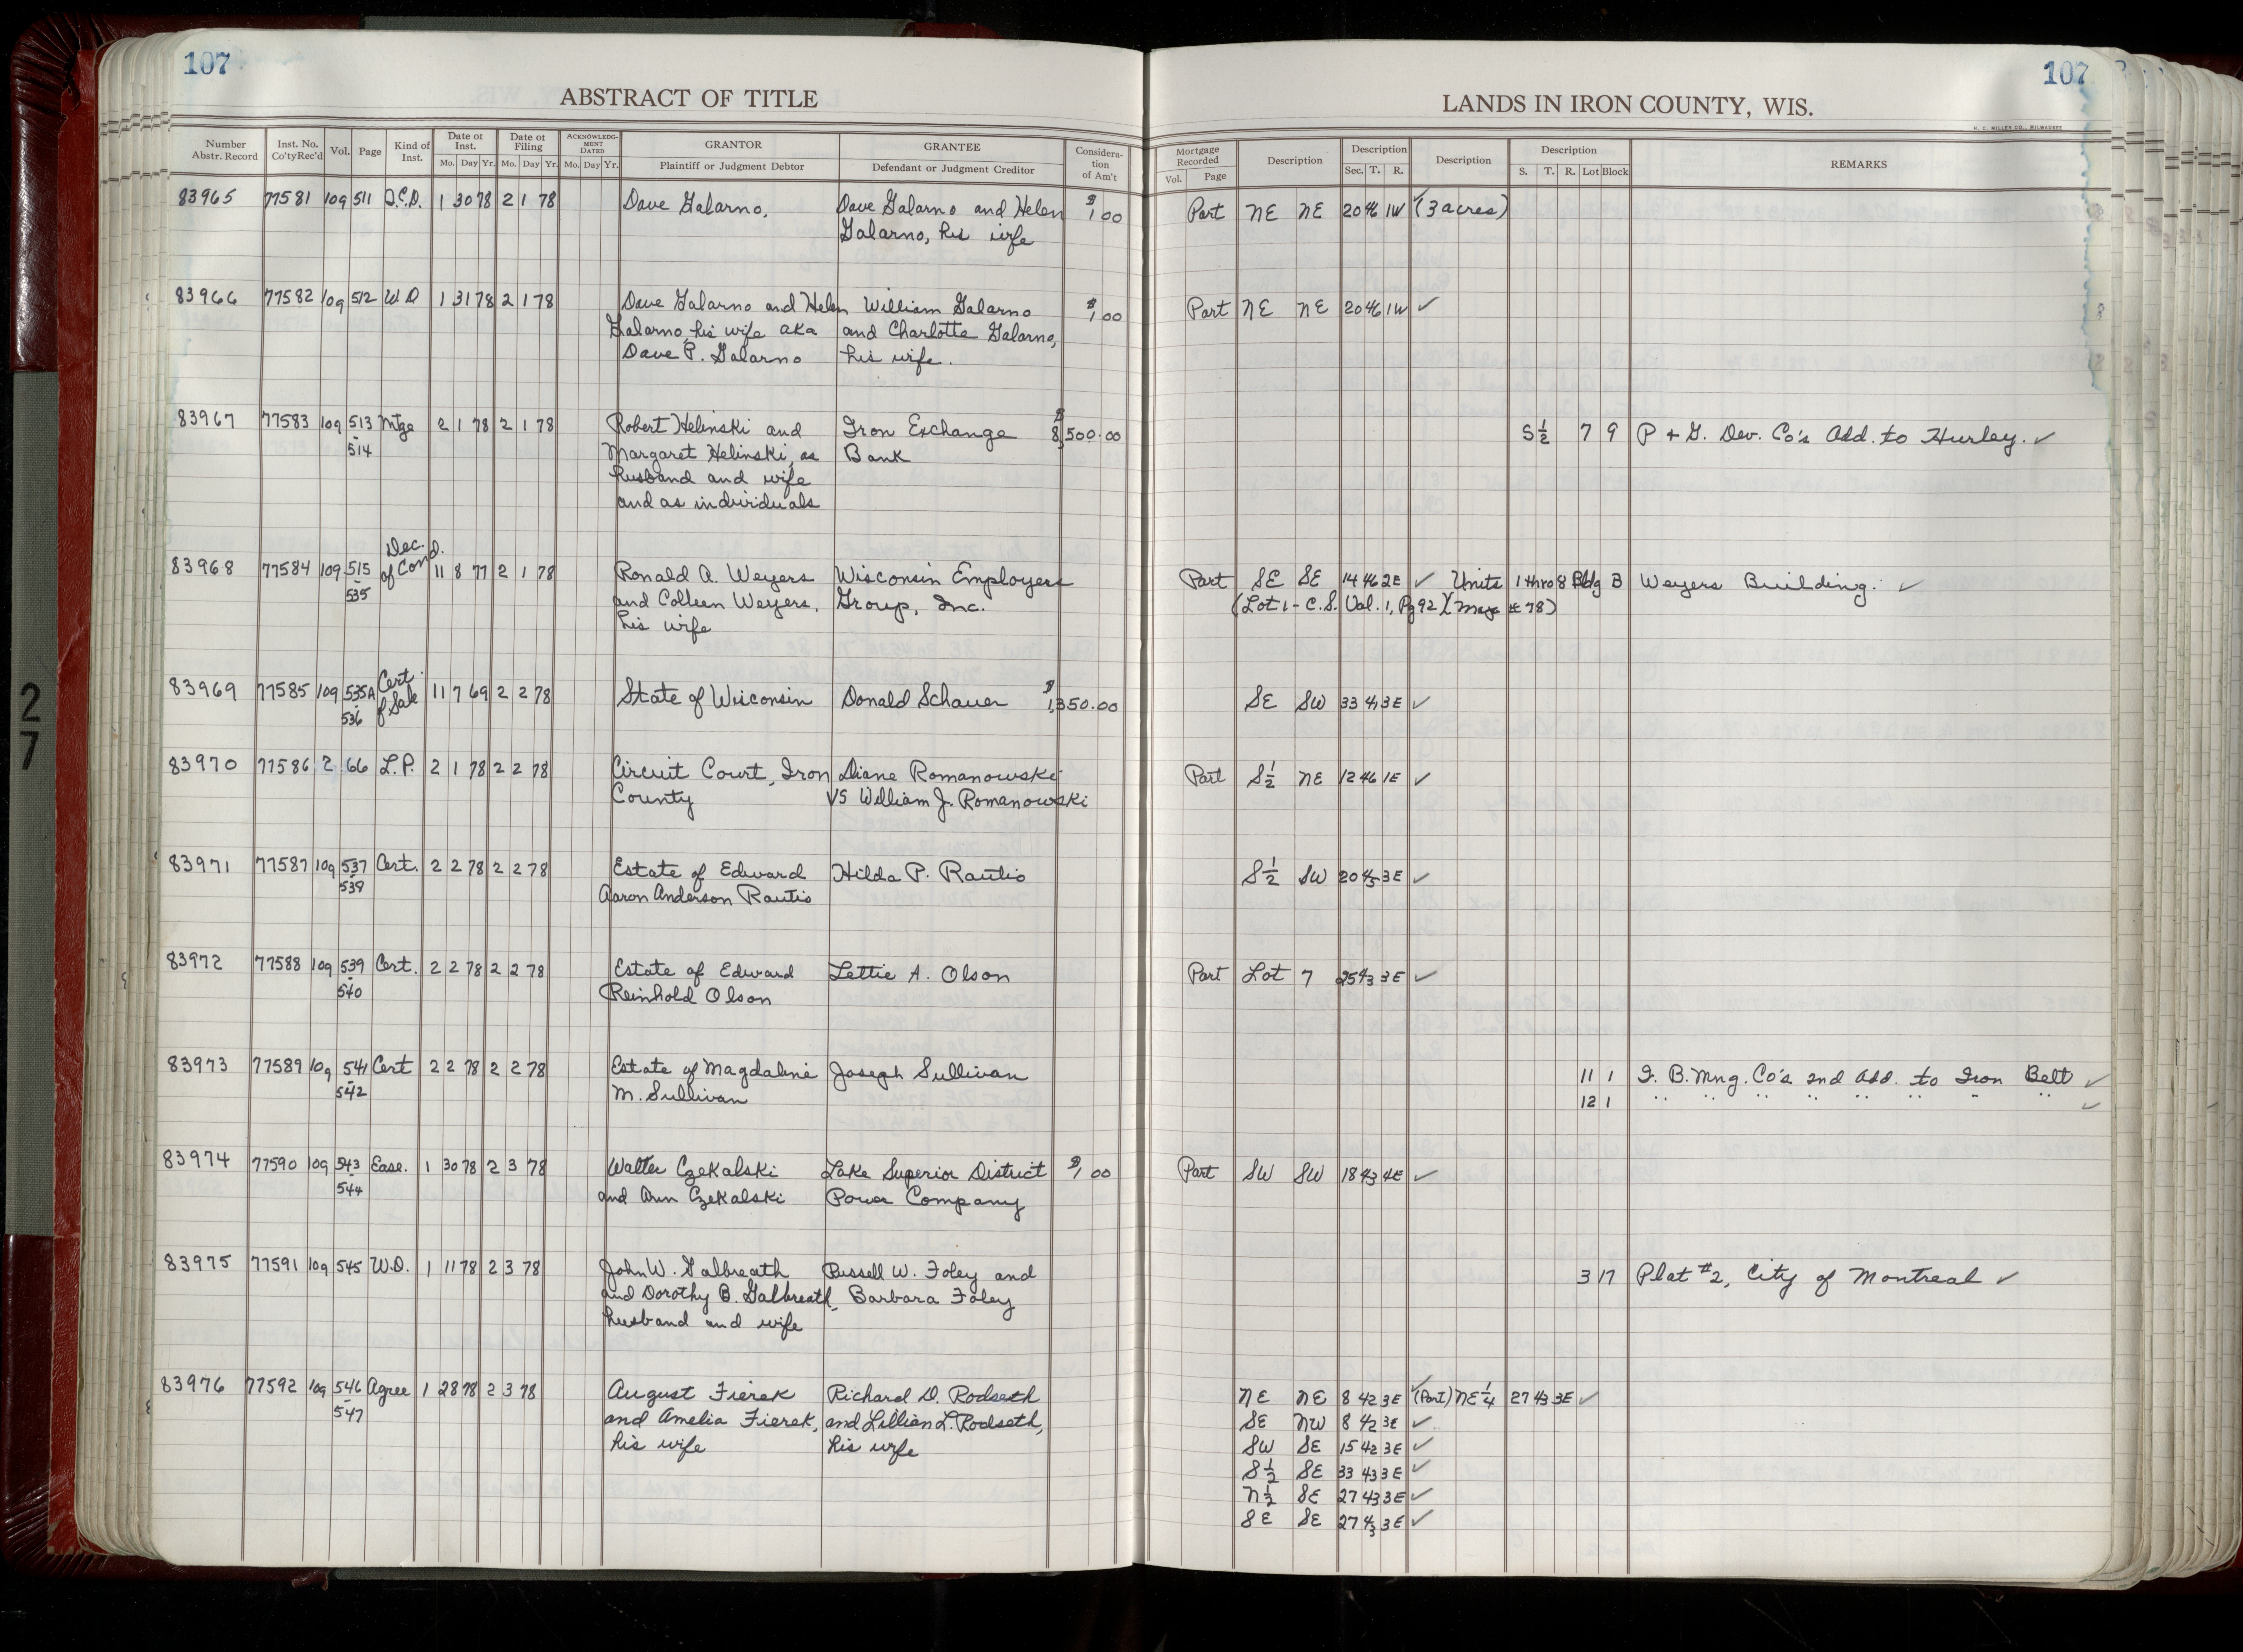 107
107
ABSTRACT OF TITLE
LANDS IN IRON COUNTY, WIS.
H. C. MILLER CO., MILWAUKEE
Number Abstr. Record | Inst. No. Co'ty Rec'd | Vol. | Page | Kind of Inst. | Date of Inst. Mo. Day Yr. | Date of Filing Mo. Day Yr. | ACKNOWLEDGMENT DATED Mo. Day Yr. | GRANTOR Plaintiff or Judgment Debtor | GRANTEE Defendant or Judgment Creditor | Consideration of Am't | Mortgage Recorded Vol. Page | Description | Description Sec. T. R. | Description | Description S. T. R. Lot Block | REMARKS
83965 77581 109 511 Q.C.D. 1 30 78 2 1 78 Dave Galarno, Dave Galarno and Helen $1.00 Part NE NE 20 46 1W ✓ (3 acres)
Galarno, his wife
83966 77582 109 512 W D 1 31 78 2 1 78 Dave Galarno and Helen William Galarno $1.00 Part NE NE 20 46 1W ✓
Galarno, his wife aka and Charlotte Galarno,
Dave P. Galarno his wife.
83967 77583 109 513 Mtge 2 1 78 2 1 78 Robert Helinski and Iron Exchange $8,500.00 S½ 7 9 P + G. Dev. Co's Add. to Hurley. ✓
- 514 Margaret Helinski, as Bank
husband and wife
and as individuals
83968 77584 109 515 Dec. of Cond. 11 8 77 2 1 78 Ronald A. Weyers Wisconsin Employers Part SE SE 14 46 2E ✓ Units 1 thro 8 Bldg B Weyers Building. ✓
- 535 and Colleen Weyers, Group, Inc. (Lot 1 - C.S. Vol. 1, Pg 92) (Map # 78)
his wife
83969 77585 109 535A Cert. of Sale 11 7 69 2 2 78 State of Wisconsin Donald Schauer $1,350.00 SE SW 33 41 3E ✓
- 536
83970 77586 2 66 L.P. 2 1 78 2 2 78 Circuit Court, Iron Diane Romanowski Part S½ NE 12 46 1E ✓
County VS William J. Romanowski
83971 77587 109 537 Cert. 2 2 78 2 2 78 Estate of Edward Hilda P. Rautio S½ SW 20 45 3E ✓
- 539 Aaron Anderson Rautio
83972 77588 109 539 Cert. 2 2 78 2 2 78 Estate of Edward Lettie A. Olson Part Lot 7 25 43 3E ✓
- 540 Reinhold Olson
83973 77589 109 541 Cert 2 2 78 2 2 78 Estate of Magdaline Joseph Sullivan 11 1 I. B. Mng. Co's 2nd Add. to Iron Belt ✓
- 542 M. Sullivan 12 1 " " " " " " " " ✓
83974 77590 109 543 Ease. 1 30 78 2 3 78 Walter Czekalski Lake Superior District $1.00 Part SW SW 18 43 4E ✓
- 544 and Ann Czekalski Power Company
83975 77591 109 545 W.D. 1 11 78 2 3 78 John W. Galbreath Russell W. Foley and 3 17 Plat #2, City of Montreal ✓
and Dorothy B. Galbreath, Barbara Foley
husband and wife
83976 77592 109 546 Agree 1 28 78 2 3 78 August Fierek Richard D. Rodseth NE NE 8 42 3E ✓ (Part) NE¼ 27 43 3E ✓
- 547 and Amelia Fierek, and Lillian L. Rodseth, SE NW 8 42 3E ✓
his wife his wife SW SE 15 42 3E ✓
S½ SE 33 43 3E ✓
N½ SE 27 43 3E ✓
SE SE 27 43 3E ✓
27